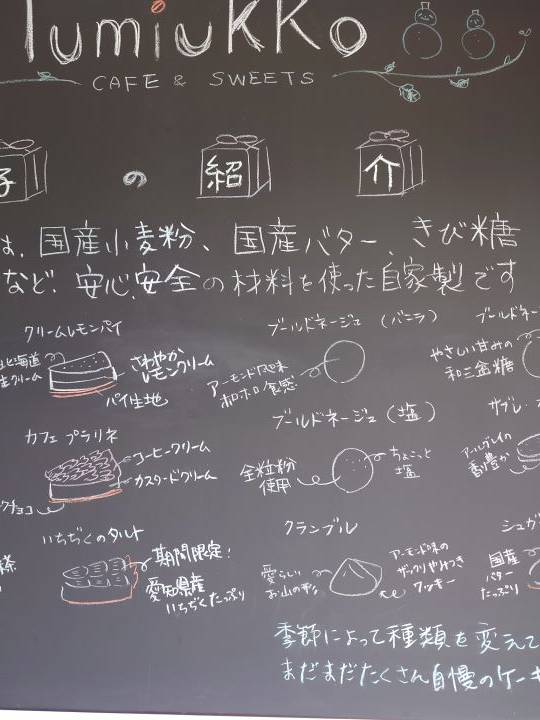 lumiukko
CAFE & SWEETS
子 の 紹 介
は、国産小麦粉、国産バター、きび糖
など、安心、安全の材料を使った自家製です
クリームレモンパイ
北海道
生クリーム
さわやか
レモンクリーム
パイ生地
カフェ プラリネ
コーヒークリーム
カスタードクリーム
クチョコ
いちぢくのタルト
期間限定!
愛知県産
いちぢくたっぷり
茶
ブールドネージュ (バニラ)
アーモンド風味
ホロホロ食感
ブールドネージュ (塩)
全粒粉
使用
ちょこっと
塩
クランブル
愛らしい
お山の形
アーモンド味の
ザックリやみつき
クッキー
ブールドネー
やさしい甘みの
和三盆糖
サブレ・
アールグレイの
香り豊か
シュガ
国産
バター
たっぷり
季節によって種類を変えて
まだまだたくさん自慢のケーキ